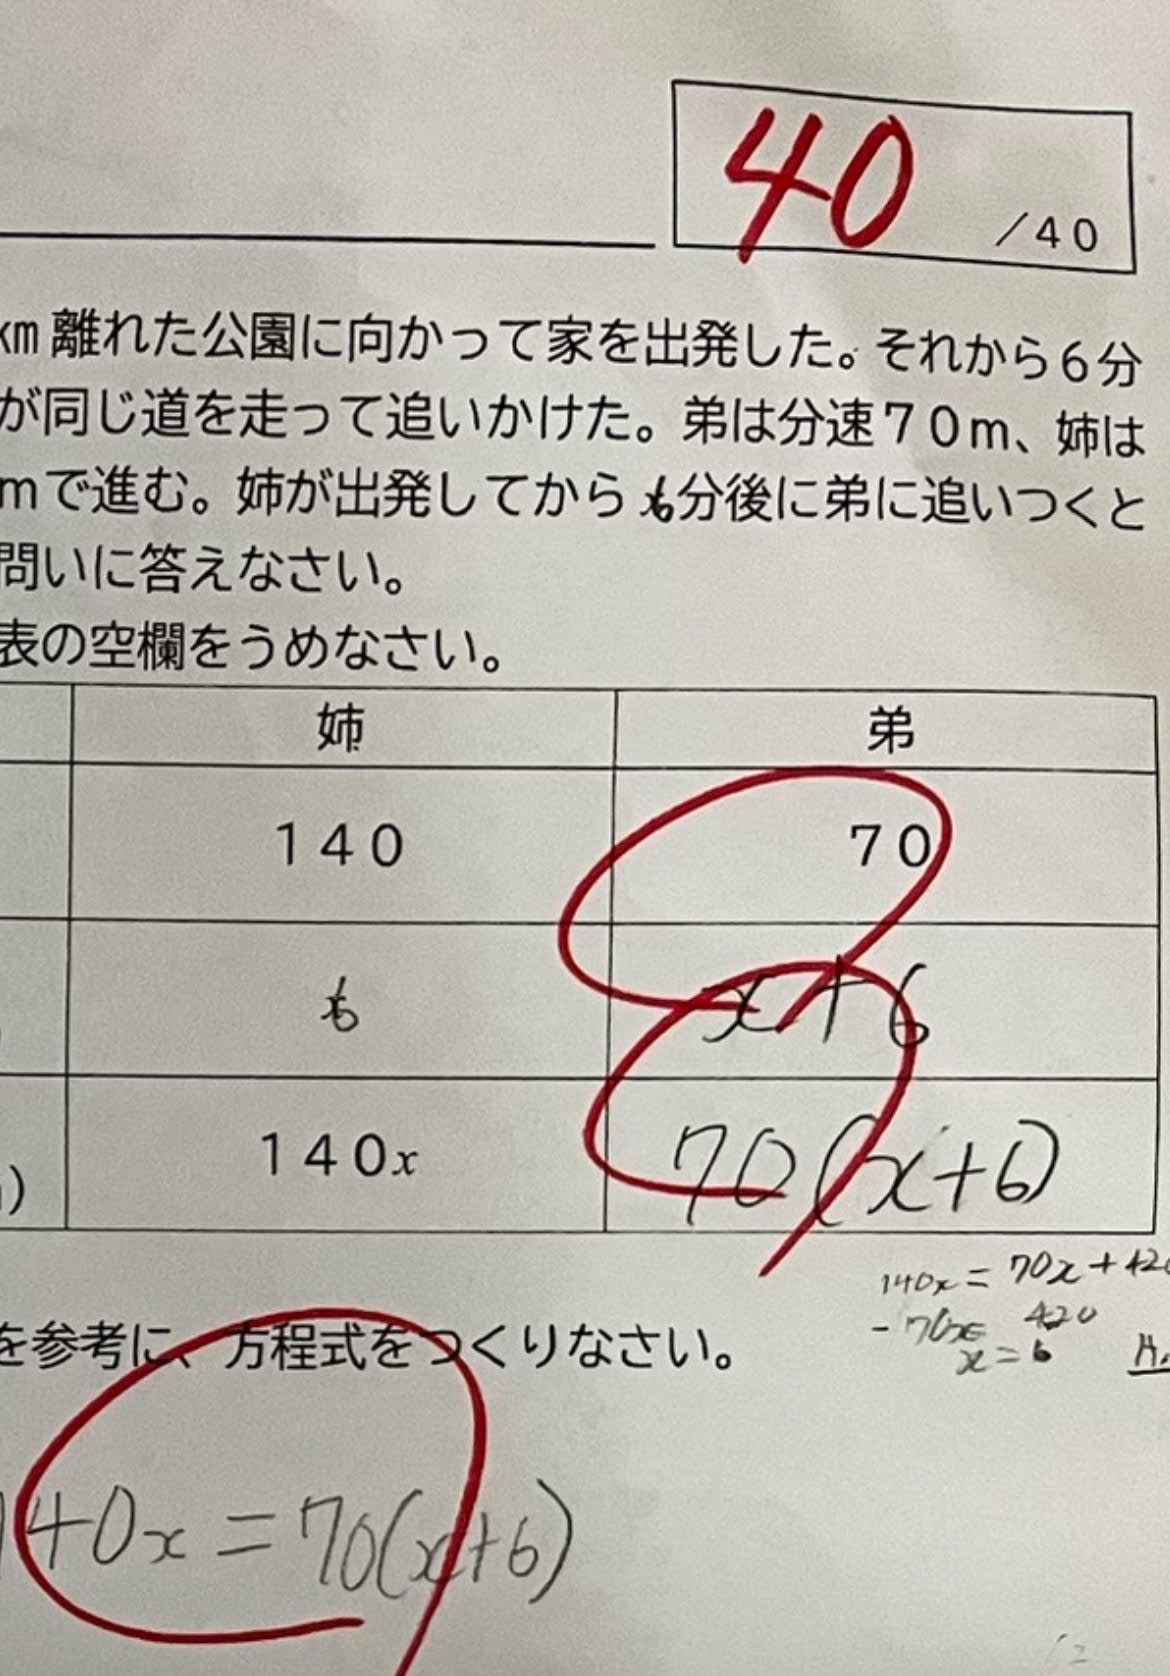 40
/40
km離れた公園に向かって家を出発した。それから6分
が同じ道を走って追いかけた。弟は分速70m、姉は
mで進む。姉が出発してから x6分後に弟に追いつくと
問いに答えなさい。
表の空欄をうめなさい。
姉 弟
140 70
x6 x+6
) 140x 70(x+6)
140x=70x+420
-70x= 420
x=6
を参考に、方程式をつくりなさい。
140x=70(x+6)